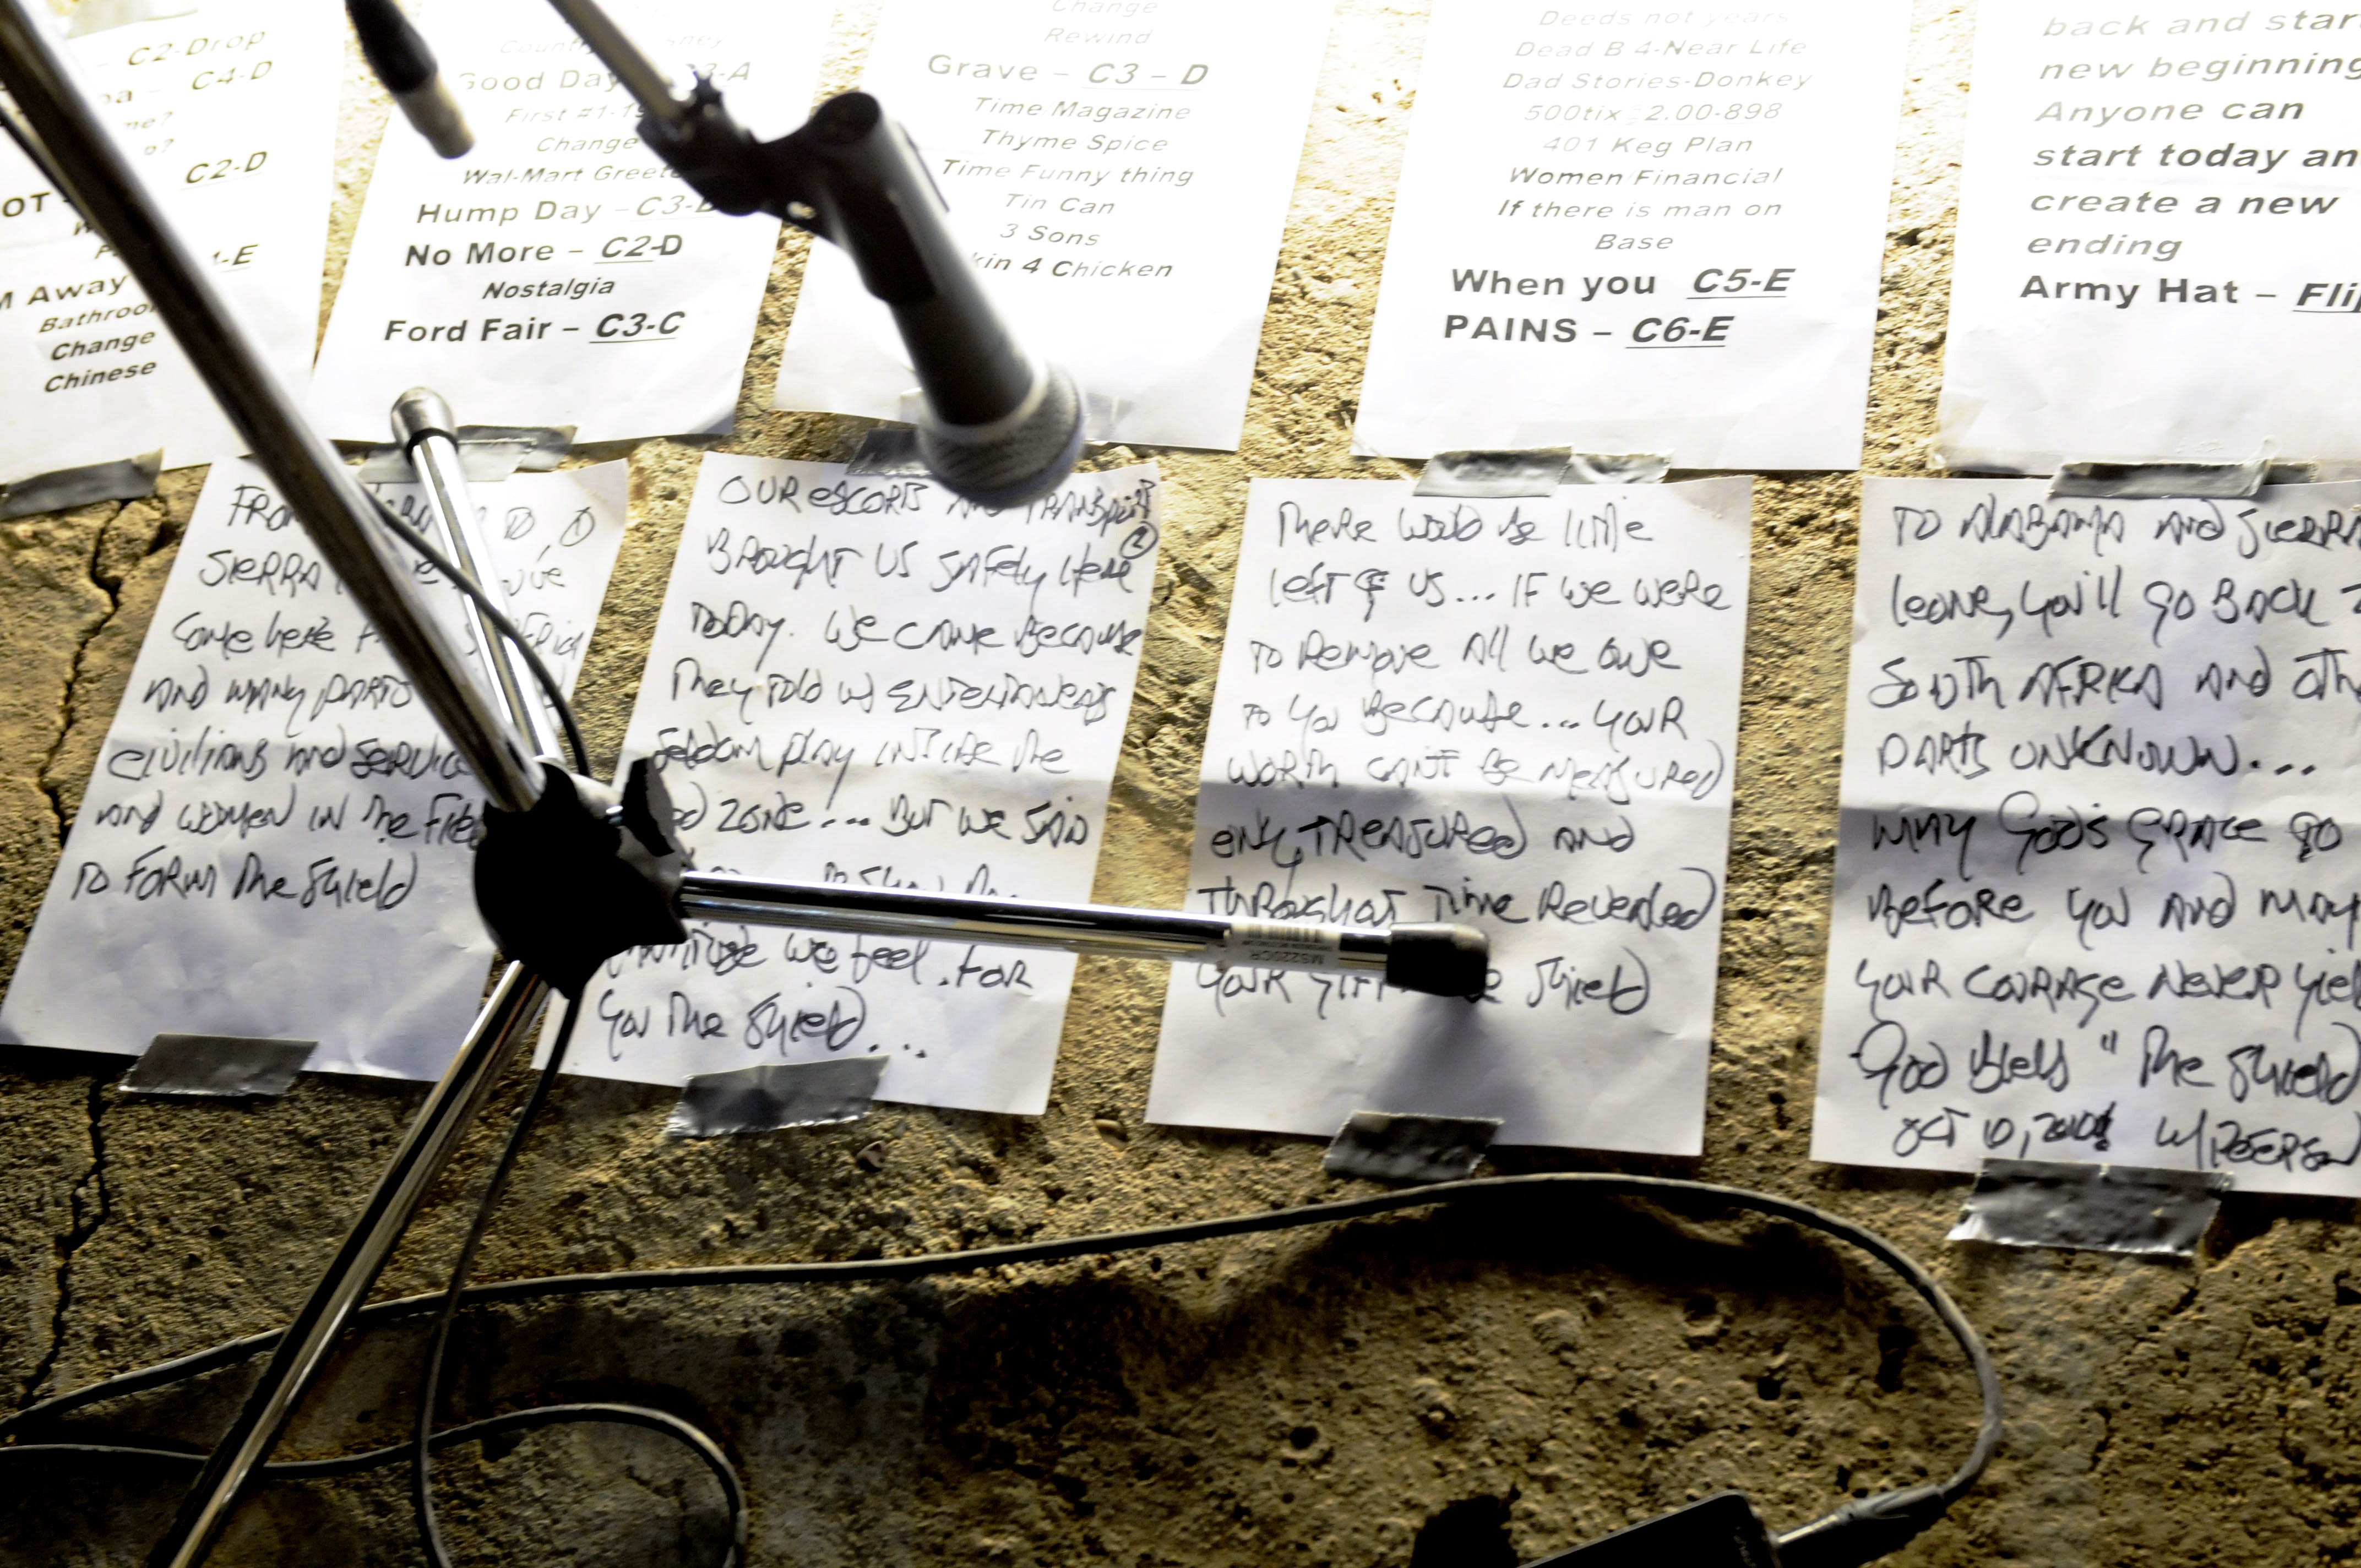 C2-Drop
C4-D
C2-D
Away
Change
Chinese
Good Day
First #1
Change
Wal-Mart
Hump Day –
No More – C2-D
Nostalgia
Ford Fair – C3-C
Change
Rewind
Grave – C3 – D
Time Magazine
Thyme Spice
Time Funny thing
Tin Can
3 Sons
4 Chicken
Deeds not years
Dead B 4-Near Life
Dad Stories-Donkey
500tix 2.00-898
401 Keg Plan
Women Financial
If there is man on
Base
When you C5-E
PAINS – C6-E
back and
new beginning
Anyone can
start today
create a new
ending
Army Hat –
①
SIERRA
Come here
AND MANY PARTS
civilians AND
AND WOMEN IN The
TO FORM The Shield
OUR escorts AND
②
BROUGHT US SAFely Here
TODAY. We CAME Because
They TOLD US ENTERTAINERS
Seldom play INSIDE The
ZONE... BUT We SAID
we feel for
You The Shield...
There would be little
left of us... IF we were
TO Remove All we owe
TO You Because... YOUR
WORTH CAN'T Be MeASURED
ONLY TREASURED AND
THROUGHOUT Time Revealed
YOUR Shield
TO ALABAMA AND SIERRA
leone, You'll go BACK
South AFRICA AND
PARTS UNKNOWN...
MAY God's GRACE go
Before You AND MAY
YOUR COURAGE Never
God Bless "The Shield
OCT 10,
MS220CR